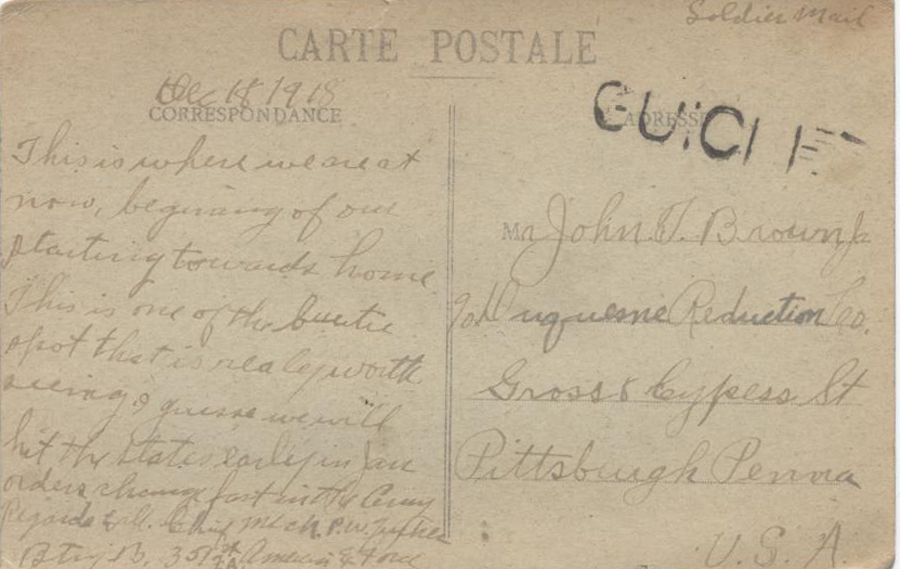 Soldier Mail
CARTE POSTALE
Dec 18 1918
CORRESPONDANCE
This is where we are at
now, begining of our
starting towards home
This is one of the
spot that is realy worth
seeing, I guess we will
hit the States early in Jan
orders change fast in the Army
Regards to all. Chief Mech. P.W.
Btry B, 351st
ADRESSE
Mr John T. Brown Jr
c/o Duquesne Reduction Co.
Gross & Cypess St
Pittsburgh Penna
U.S.A.